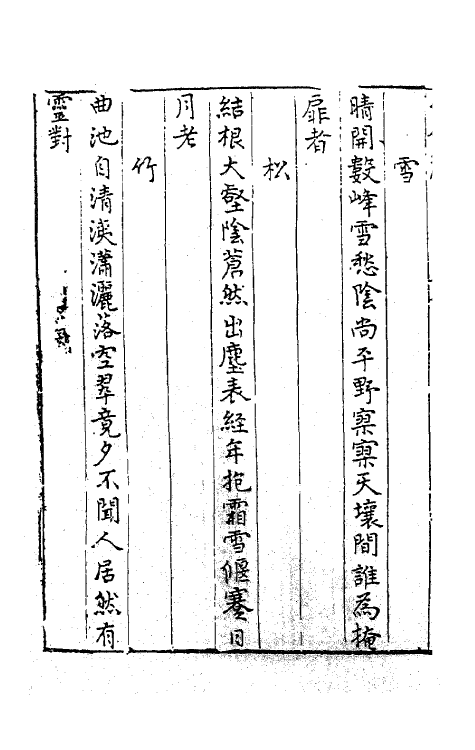 雪
晴開數峰雪愁陰尚平野寥寥天壤間誰為掩
扉者
松
結根大壑陰蒼然出塵表経年抱霜雪偃蹇日
月老
竹
曲池自清漪瀟灑落空翠竟夕不聞人居然有
靈對